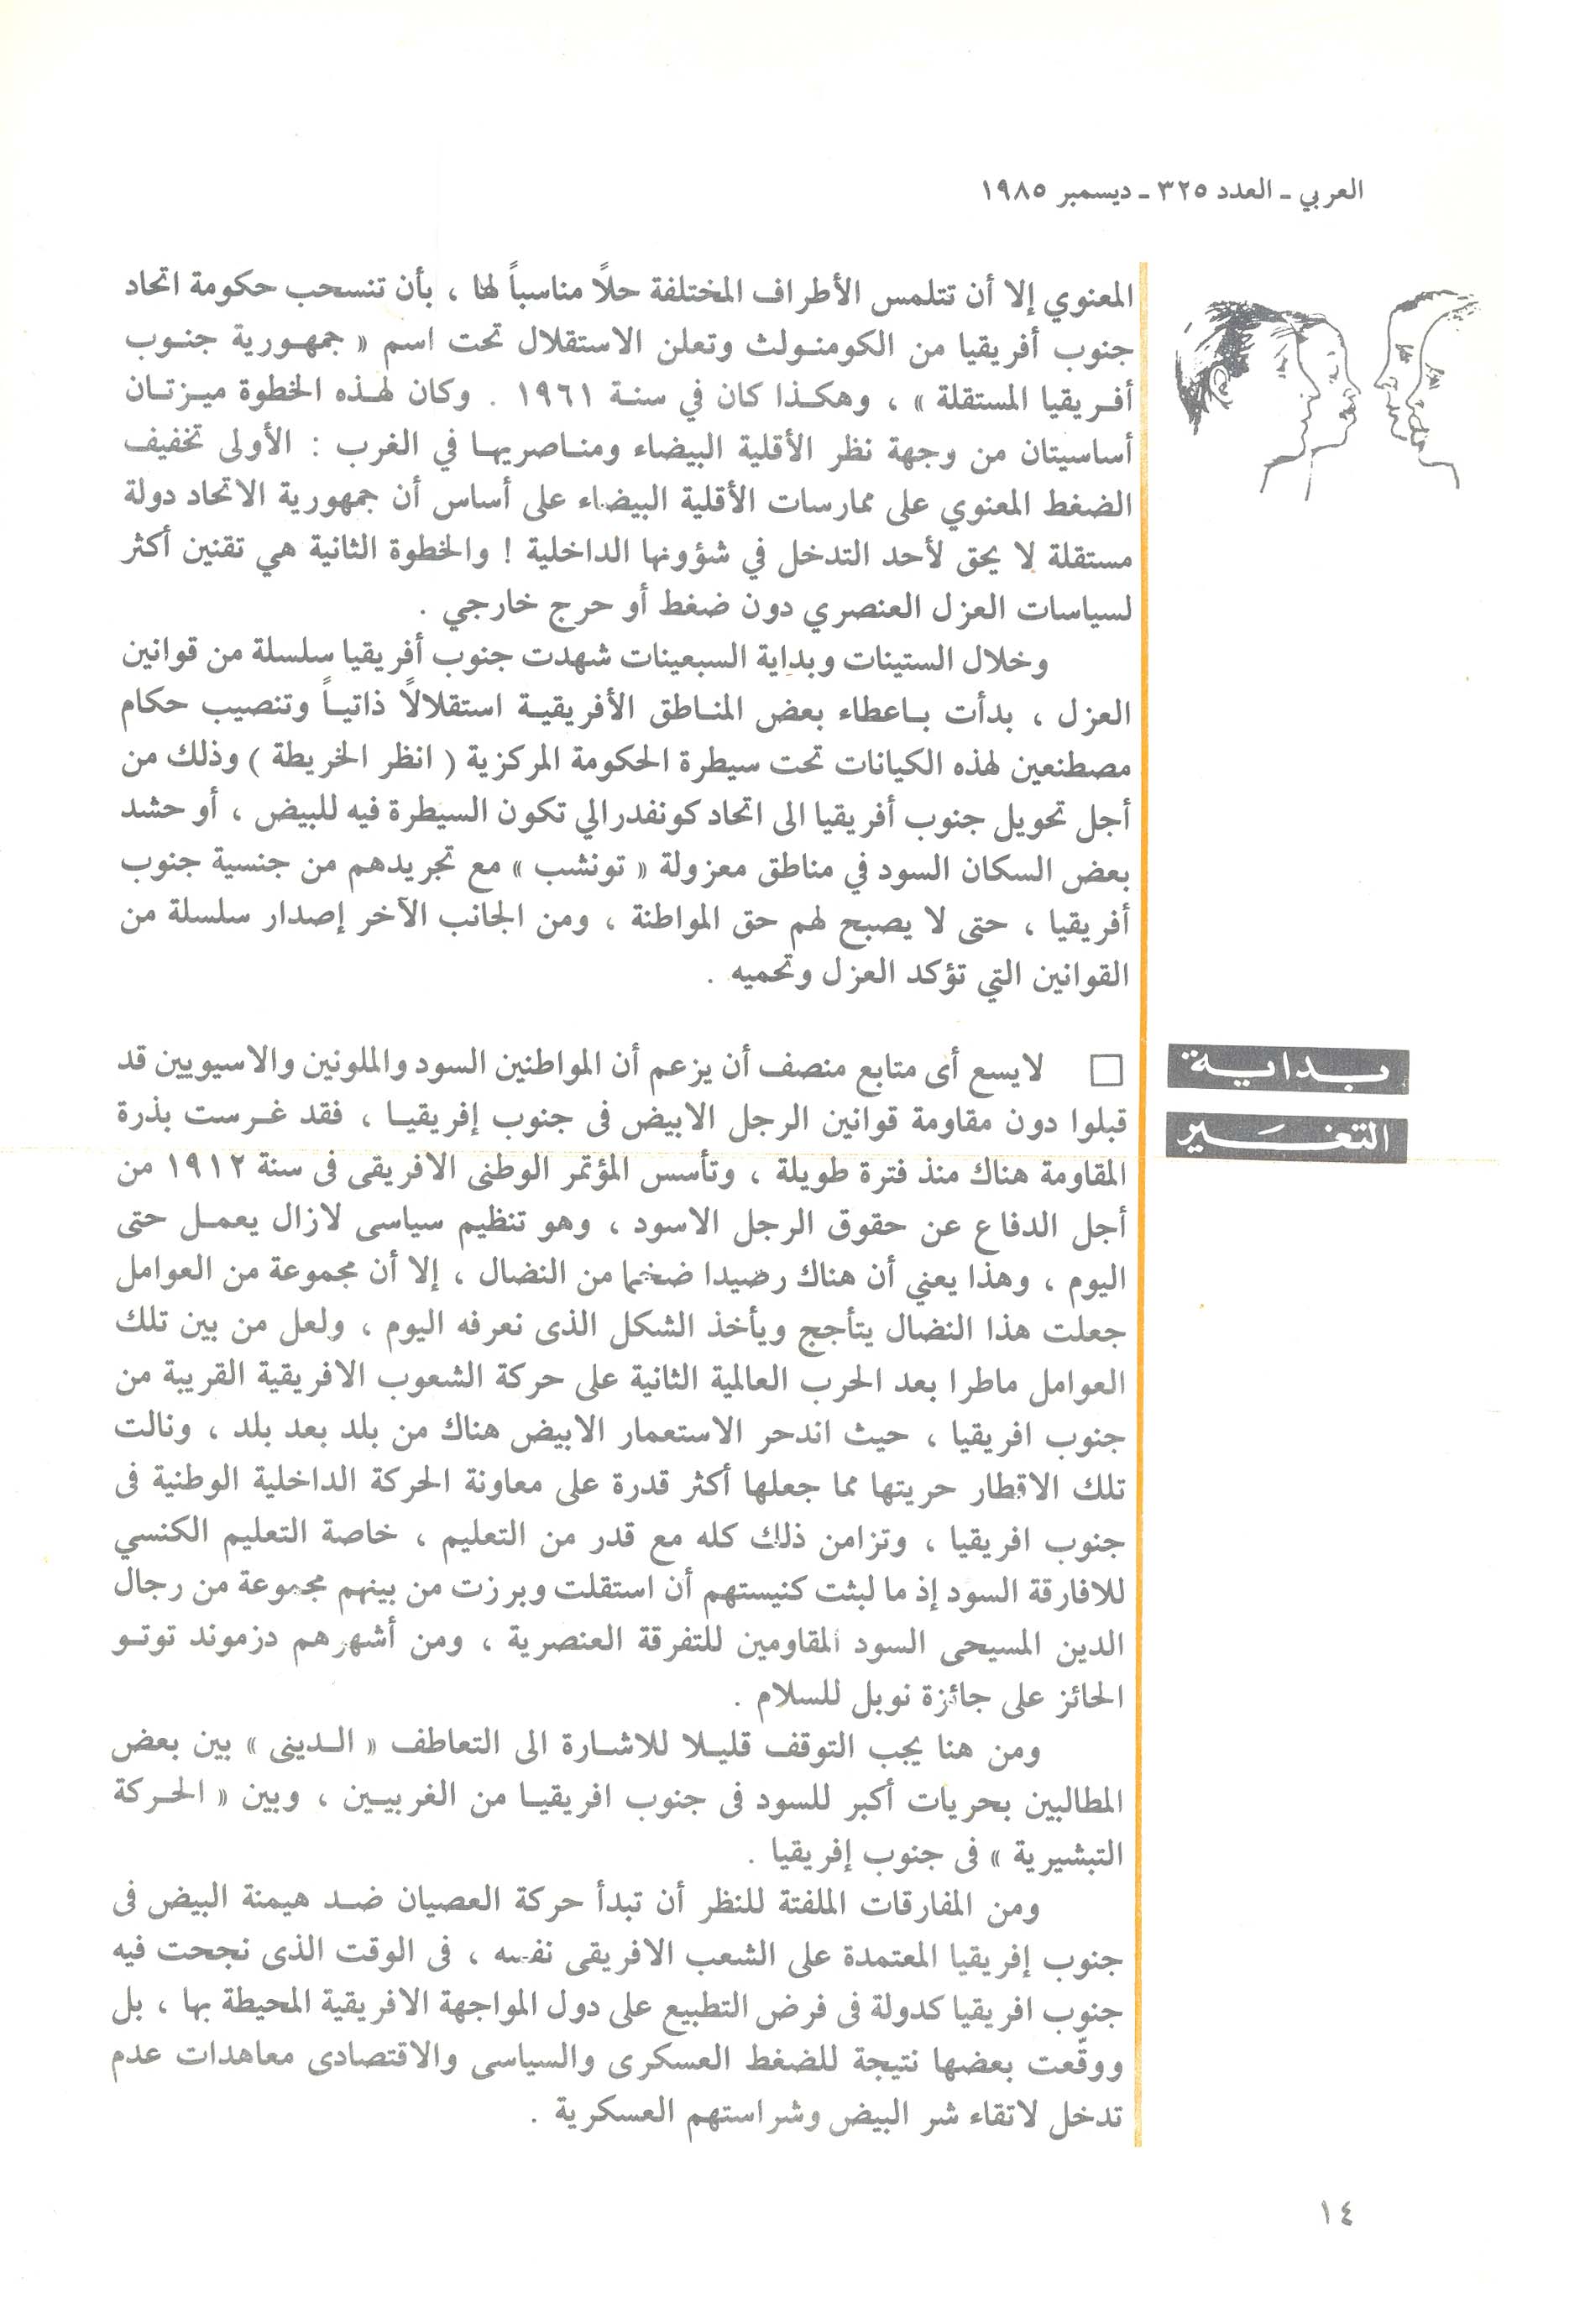 العربي - العدد ٣٢٥ - ديسمبر ١٩٨٥
المعنوي إلا أن تتلمس الأطراف المختلفة حلاً مناسباً لها ، بأن تنسحب حكومة اتحاد
جنوب أفريقيا من الكومنولث وتعلن الاستقلال تحت اسم « جمهورية جنوب
أفريقيا المستقلة » ، وهكذا كان في سنة ١٩٦١ . وكان لهذه الخطوة ميزتان
أساسيتان من وجهة نظر الأقلية البيضاء ومناصريها في الغرب : الأولى تخفيف
الضغط المعنوي على ممارسات الأقلية البيضاء على أساس أن جمهورية الاتحاد دولة
مستقلة لا يحق لأحد التدخل في شؤونها الداخلية ! والخطوة الثانية هي تقنين أكثر
لسياسات العزل العنصري دون ضغط أو حرج خارجي .
وخلال الستينات وبداية السبعينات شهدت جنوب أفريقيا سلسلة من قوانين
العزل ، بدأت باعطاء بعض المناطق الأفريقية استقلالاً ذاتياً وتنصيب حكام
مصطنعين لهذه الكيانات تحت سيطرة الحكومة المركزية ( انظر الخريطة ) وذلك من
أجل تحويل جنوب أفريقيا الى اتحاد كونفدرالي تكون السيطرة فيه للبيض ، أو حشد
بعض السكان السود في مناطق معزولة « تونشب » مع تجريدهم من جنسية جنوب
أفريقيا ، حتى لا يصبح لهم حق المواطنة ، ومن الجانب الآخر إصدار سلسلة من
القوانين التي تؤكد العزل وتحميه .
بداية
التغـَـيير
□ لايسع أى متابع منصف أن يزعم أن المواطنين السود والملونين والاسيويين قد
قبلوا دون مقاومة قوانين الرجل الابيض فى جنوب إفريقيا ، فقد غرست بذرة
المقاومة هناك منذ فترة طويلة ، وتأسس المؤتمر الوطنى الافريقى فى سنة ١٩١٢ من
أجل الدفاع عن حقوق الرجل الاسود ، وهو تنظيم سياسى لازال يعمل حتى
اليوم ، وهذا يعني أن هناك رصيدا ضخما من النضال ، إلا أن مجموعة من العوامل
جعلت هذا النضال يتأجج ويأخذ الشكل الذى نعرفه اليوم ، ولعل من بين تلك
العوامل ماطرا بعد الحرب العالمية الثانية على حركة الشعوب الافريقية القريبة من
جنوب افريقيا ، حيث اندحر الاستعمار الابيض هناك من بلد بعد بلد ، ونالت
تلك الاقطار حريتها مما جعلها أكثر قدرة على معاونة الحركة الداخلية الوطنية فى
جنوب افريقيا ، وتزامن ذلك كله مع قدر من التعليم ، خاصة التعليم الكنسي
للافارقة السود إذ ما لبثت كنيستهم أن استقلت وبرزت من بينهم مجموعة من رجال
الدين المسيحى السود المقاومين للتفرقة العنصرية ، ومن أشهرهم دزموند توتو
الحائز على جائزة نوبل للسلام .
ومن هنا يجب التوقف قليلا للاشارة الى التعاطف « الدينى » بين بعض
المطالبين بحريات أكبر للسود فى جنوب افريقيا من الغربيين ، وبين « الحركة
التبشيرية » فى جنوب إفريقيا .
ومن المفارقات الملفتة للنظر أن تبدأ حركة العصيان ضد هيمنة البيض فى
جنوب إفريقيا المعتمدة على الشعب الافريقى نفسه ، فى الوقت الذى نجحت فيه
جنوب افريقيا كدولة فى فرض التطبيع على دول المواجهة الافريقية المحيطة بها ، بل
ووقّعت بعضها نتيجة للضغط العسكرى والسياسى والاقتصادى معاهدات عدم
تدخل لاتقاء شر البيض وشراستهم العسكرية .
١٤